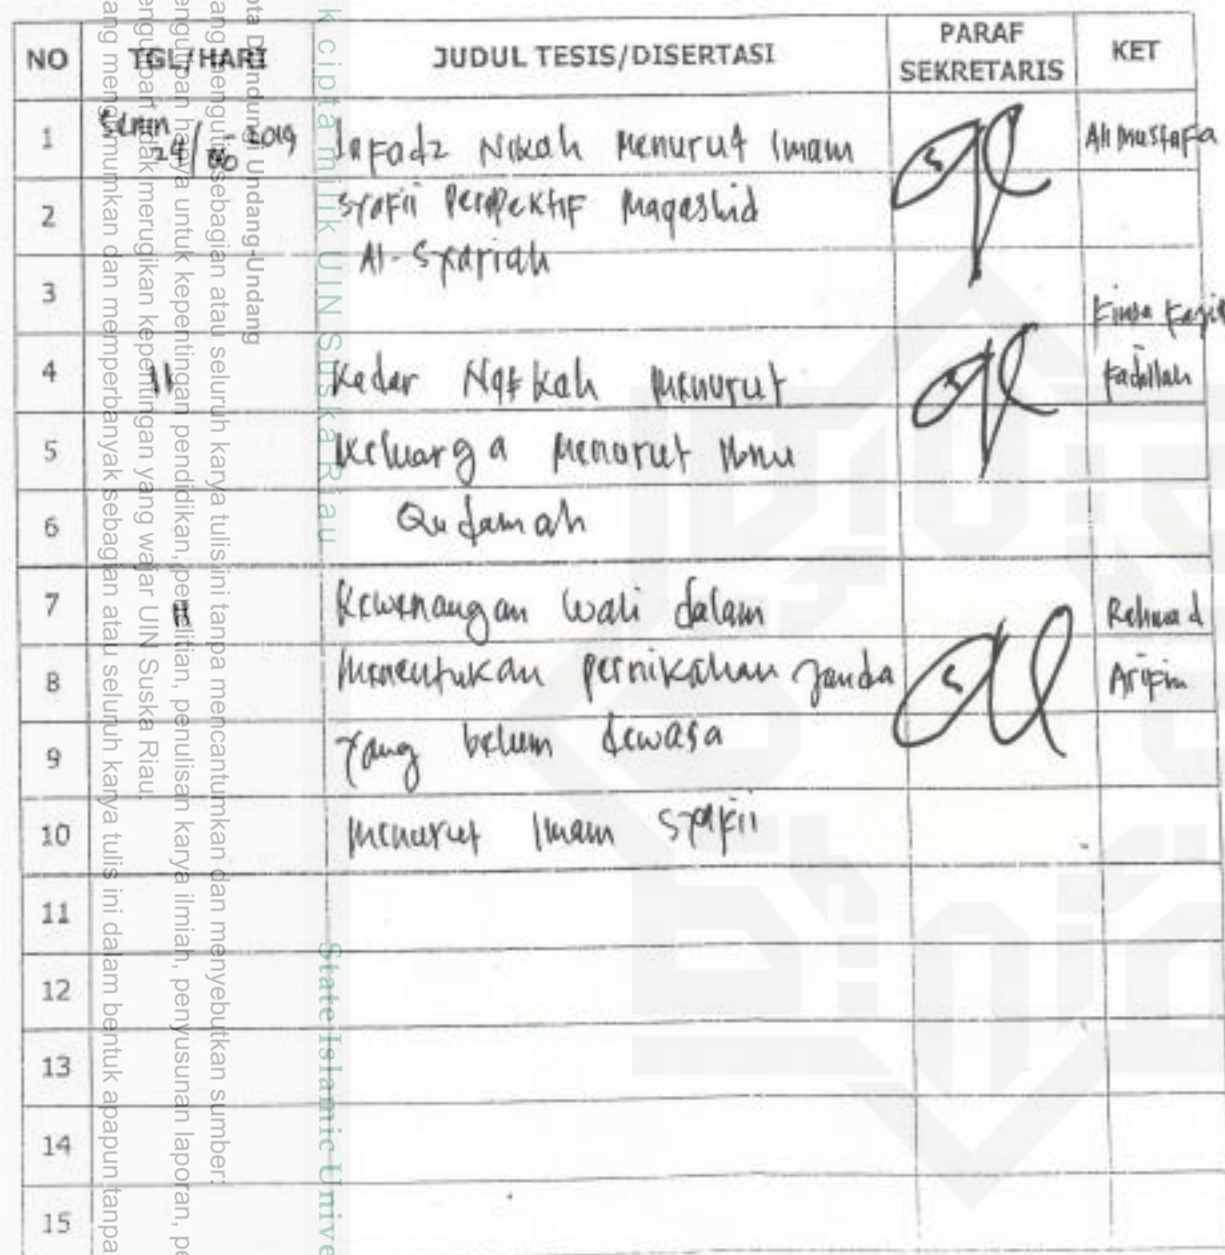 NO TGL/HARI JUDUL TESIS/DISERTASI PARAF SEKRETARIS KET
1 Senin 24/ 2019 Lafadz Nikah Menurut Imam Ali Mustafa
2 Syafii Perspektif Maqashid
3 Al-Syariah
4 " Kadar Nafkah Menurut Fadillah
5 Keluarga Menurut Ibnu
6 Qudamah
7 " Kewenangan Wali dalam Rahmad
8 Menentukan pernikahan Janda Arifin
9 Yang belum dewasa
10 Menurut Imam Syafii
11
12
13
14
15
k cipta milik UIN Suska Riau
State Islamic Unive
pta Dilindungi Undang-Undang
ang mengutip sebagian atau seluruh karya tulis ini tanpa mencantumkan dan menyebutkan sumber:
engutipan hanya untuk kepentingan pendidikan, penelitian, penulisan karya ilmiah, penyusunan laporan, pe
engutipan tidak merugikan kepentingan yang wajar UIN Suska Riau.
ang mengumumkan dan memperbanyak sebagian atau seluruh karya tulis ini dalam bentuk apapun tanpa